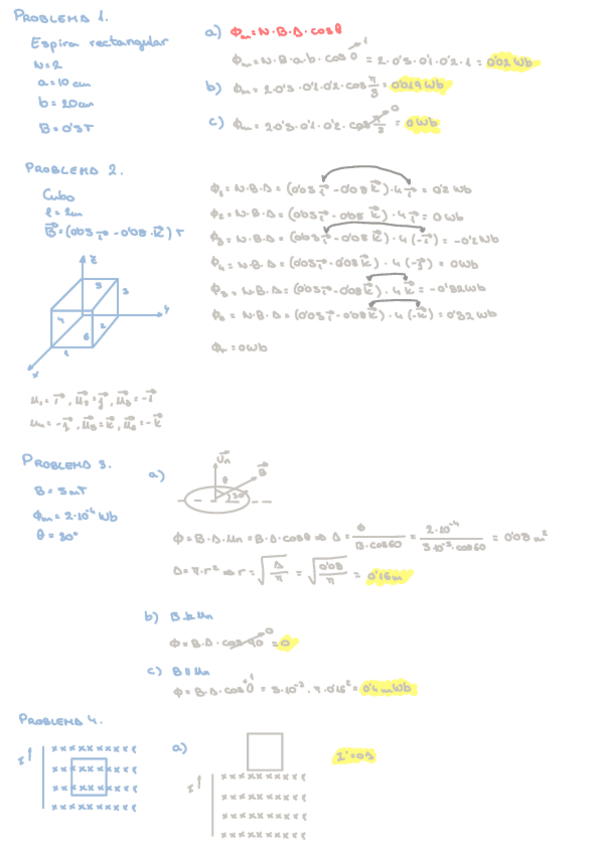 PROBLEMA 1.
Espira rectangular
N=2
a=10 cm
b=20cm
B=0'5T
a) Φm=N·B·A·cosθ
Φm=N·B·a·b·cos 0 →1 = 2·0'5·0'1·0'2·1 = 0'02 Wb
b) Φm=2·0'5·0'1·0'2·cos π/3 = 0'019 Wb
c) Φm=2·0'5·0'1·0'2·cos π/2 →0 = 0 Wb
PROBLEMA 2.
Cubo
l=2m
B⃗=(0'05 i⃗ - 0'08·k⃗) T
z
y
x
1 2 3 4 5 6
Φ1=N·B·A=(0'05 i⃗ - 0'08 k⃗)·4 i⃗ = 0'2 Wb
Φ2=N·B·A=(0'05 i⃗ - 0'08 k⃗)·4 j⃗ = 0 Wb
Φ3=N·B·A=(0'05 i⃗ - 0'08 k⃗)·4(-i⃗) = -0'2 Wb
Φ4=N·B·A=(0'05 i⃗ - 0'08 k⃗)·4(-j⃗) = 0 Wb
Φ5=N·B·A=(0'05 i⃗ - 0'08 k⃗)·4 k⃗ = -0'32 Wb
Φ6=N·B·A=(0'05 i⃗ - 0'08 k⃗)·4(-k⃗) = 0'32 Wb
ΦT=0 Wb
μ1=i⃗, μ⃗2=j⃗, μ⃗3=-i⃗
μ4=-j⃗, μ⃗5=k⃗, μ⃗6=-k⃗
PROBLEMA 3.
B=5 mT
Φm=2·10⁻⁴ Wb
θ=30°
a)
U⃗n
B⃗
θ
30°
Φ=B·A·Un=B·A·cosθ ⇒ A = Φ / B·cos60 = 2·10⁻⁴ / 5·10⁻³·cos60 = 0'08 m²
A=π·r² ⇒ r=√(A/π) = √(0'08/π) = 0'16 m
b) B ⊥ Un
Φ=B·A·cos 90 →0 = 0
c) B ∥ Un
Φ=B·A·cos 0 →1 = 5·10⁻³·π·0'16² = 0'4 mWb
PROBLEMA 4.
I ↑
x x x x x x x x x
a)
I ↑
x x x x x x x x x